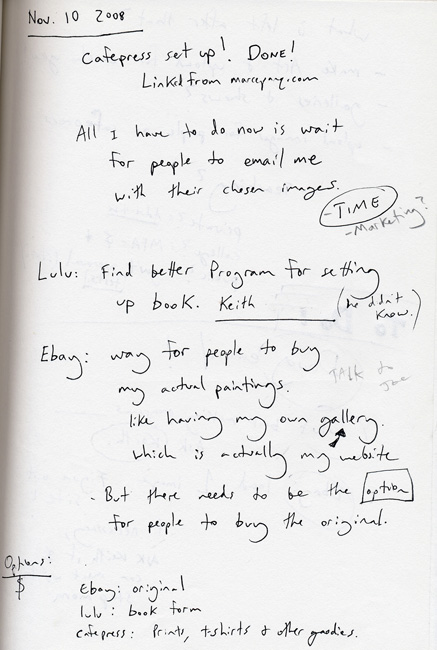 Nov. 10 2008
Cafepress set up! DONE!
Linked from marcypay.com
All I have to do now is wait
for people to email me
with their chosen images.
- TIME
- Marketing?
Lulu: Find better Program for setting
up book. Keith (he didn't know.)
Ebay: way for people to buy
my actual paintings.
Talk to Joe
like having my own gallery.
which is actually my website
. But there needs to be the option
for people to buy the original.
Options:
$
Ebay: original
lulu: book form
cafepress: Prints, t-shirts & other goodies.